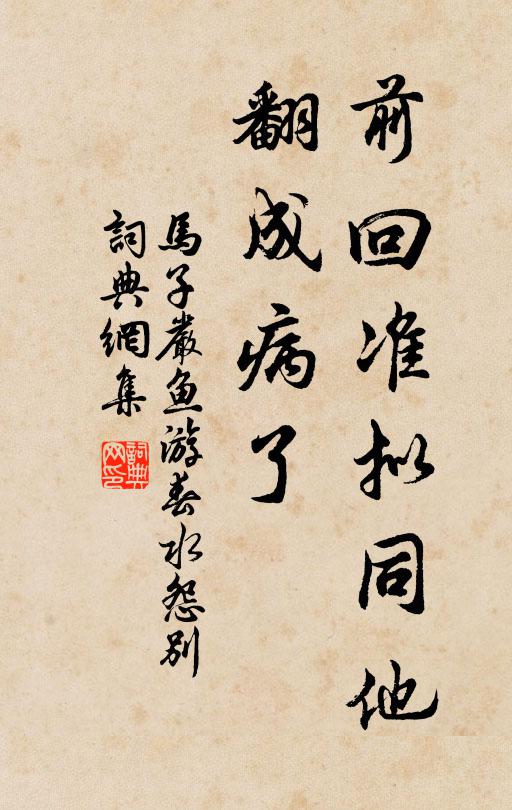 前回准拟同他
翻成病了
馬子嚴鱼游春水怨别
詞典網集
詞典网印